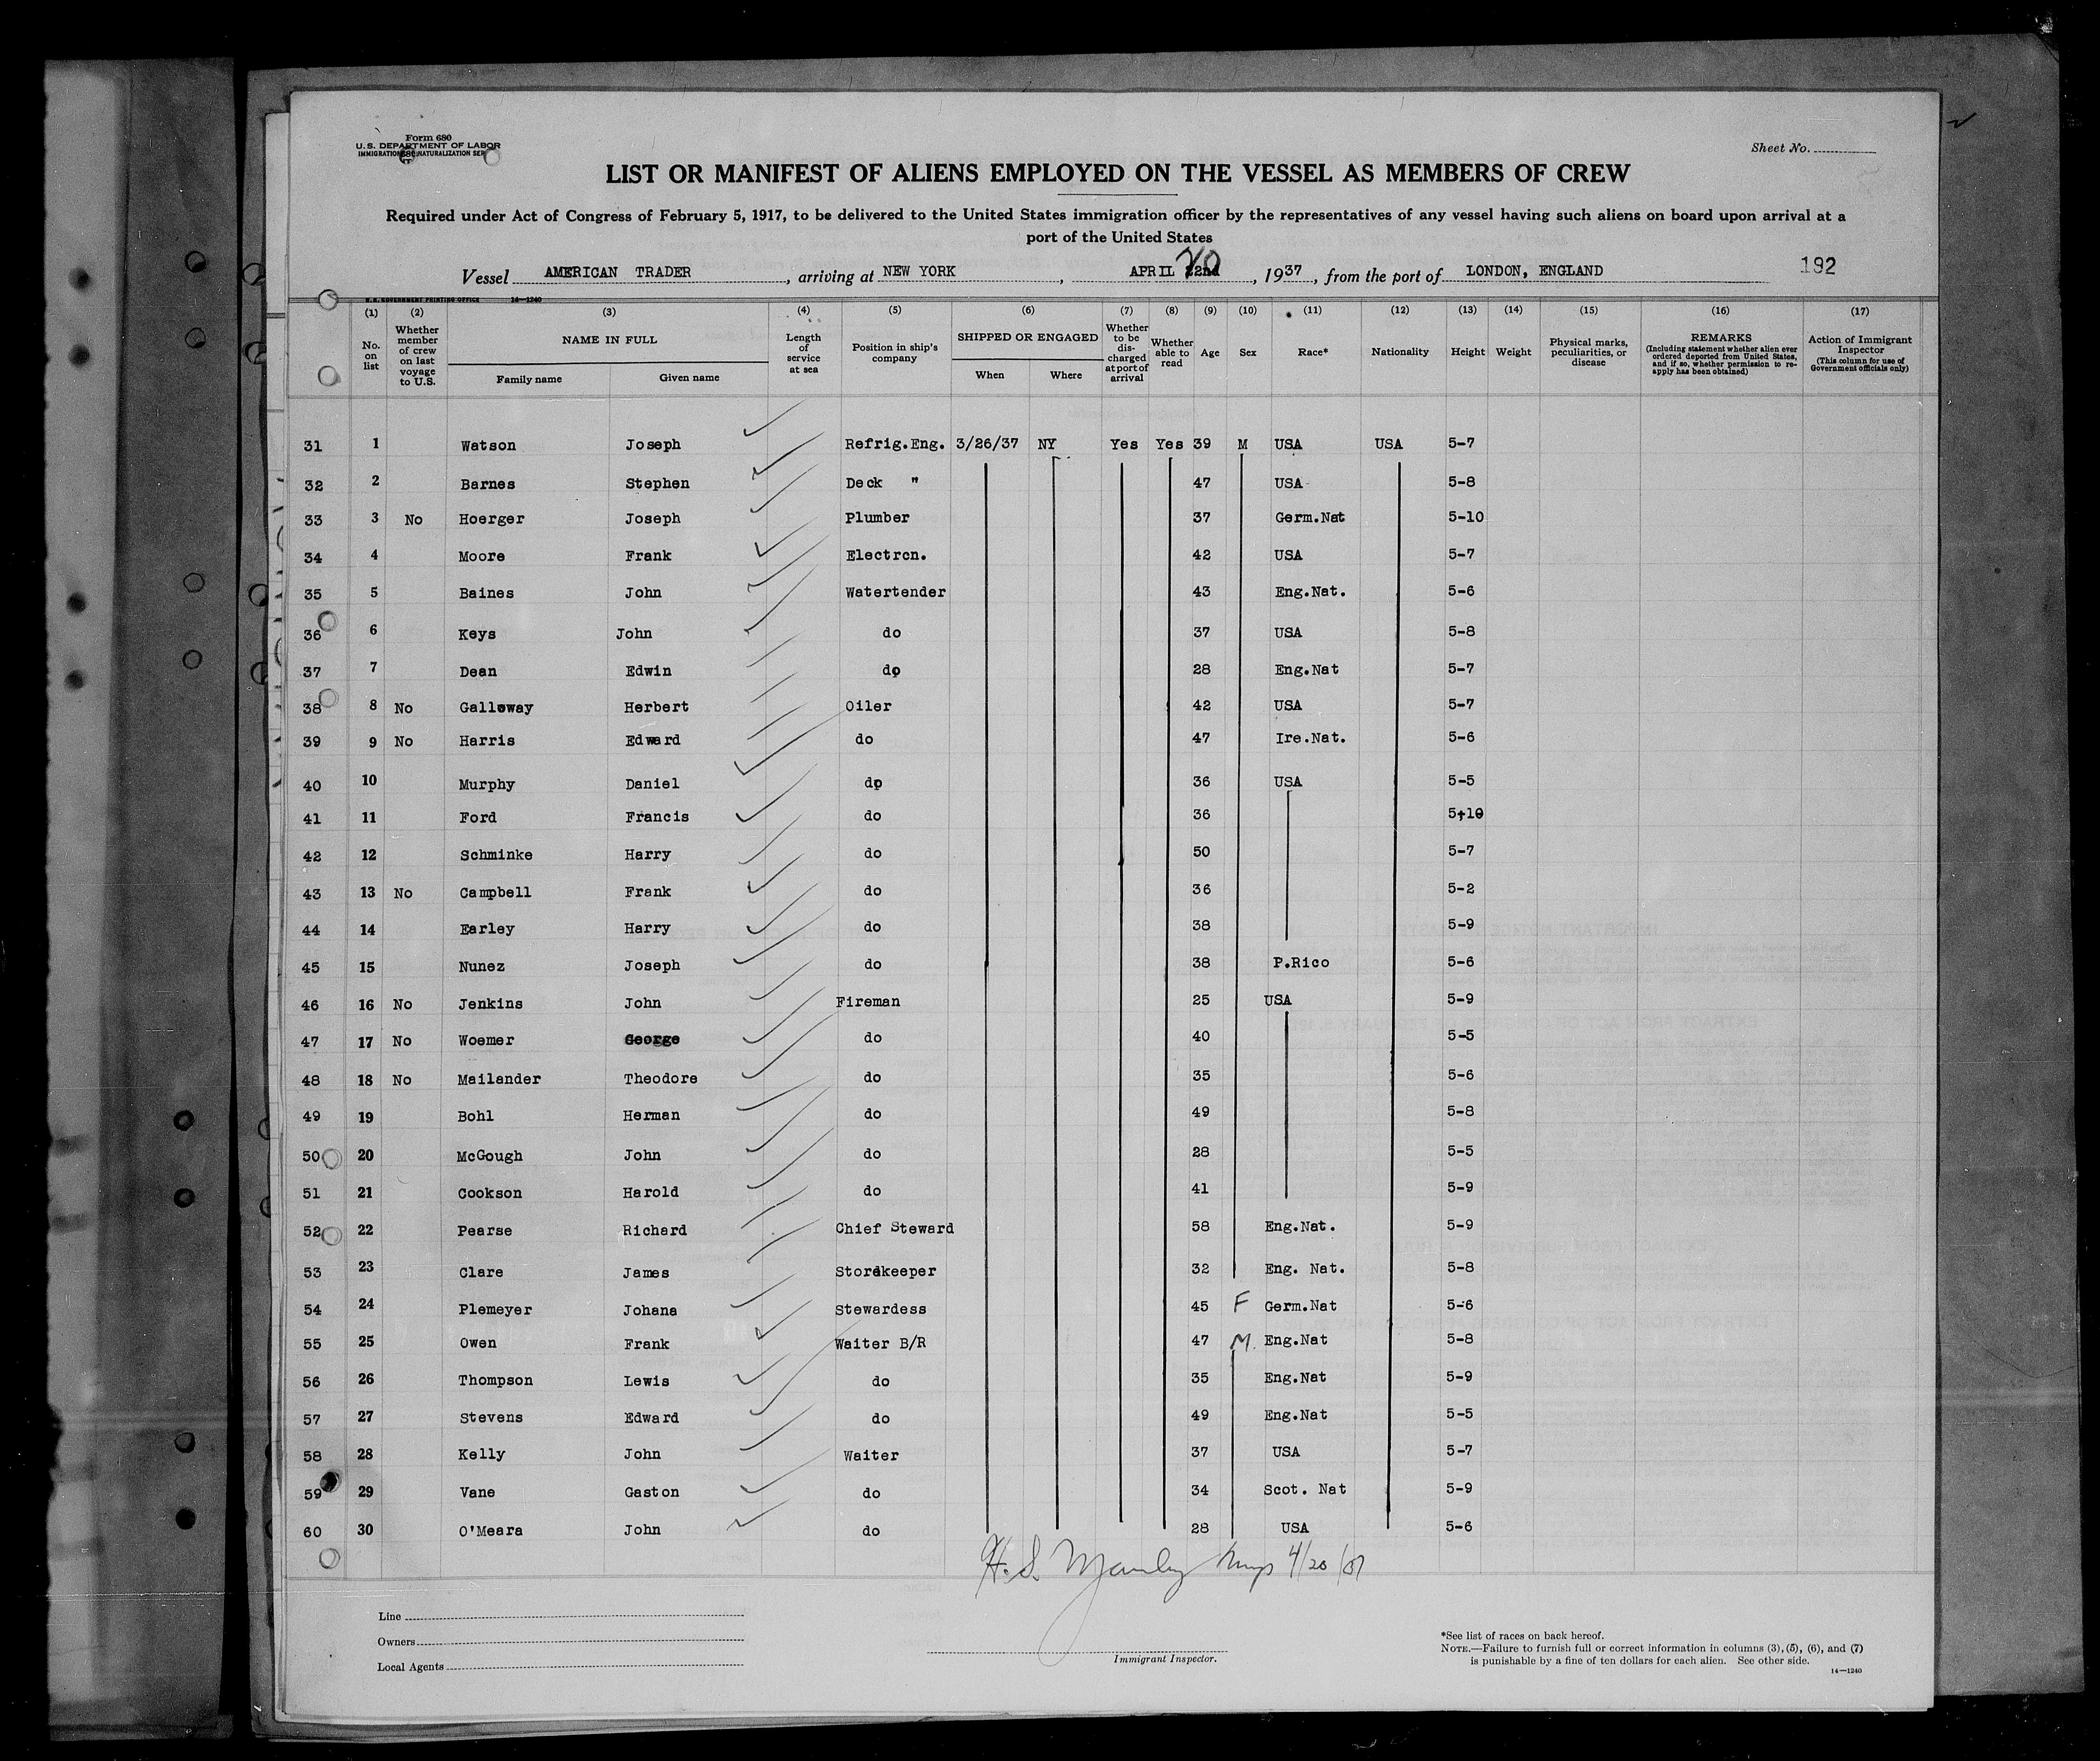 Form 680
U.S. DEPARTMENT OF LABOR
IMMIGRATION NATURALIZATION SER
Sheet No.
LIST OR MANIFEST OF ALIENS EMPLOYED ON THE VESSEL AS MEMBERS OF CREW
Required under Act of Congress of February 5, 1917, to be delivered to the United States immigration officer by the representatives of any vessel having such aliens on board upon arrival at a
port of the United States
Vessel AMERICAN TRADER, arriving at NEW YORK, APRIL 22nd 20, 1937, from the port of LONDON, ENGLAND 192
U.S. GOVERNMENT PRINTING OFFICE 14—1240
(1) (2) (3) (4) (5) (6) (7) (8) (9) (10) (11) (12) (13) (14) (15) (16) (17)
No. on list
Whether member of crew on last voyage to U.S.
NAME IN FULL
Family name Given name
Length of service at sea
Position in ship's company
SHIPPED OR ENGAGED
When Where
Whether to be discharged at port of arrival
Whether able to read
Age
Sex
Race*
Nationality
Height
Weight
Physical marks, peculiarities, or disease
REMARKS
(Including statement whether alien ever ordered deported from United States, and if so, whether permission to re-apply has been obtained)
Action of Immigrant Inspector
(This column for use of Government officials only)
31 1 Watson Joseph Refrig.Eng. 3/26/37 NY Yes Yes 39 M USA USA 5-7
32 2 Barnes Stephen Deck " 47 USA 5-8
33 3 No Hoerger Joseph Plumber 37 Germ.Nat 5-10
34 4 Moore Frank Electrcn. 42 USA 5-7
35 5 Baines John Watertender 43 Eng.Nat. 5-6
36 6 Keys John do 37 USA 5-8
37 7 Dean Edwin do 28 Eng.Nat 5-7
38 8 No Galloway Herbert Oiler 42 USA 5-7
39 9 No Harris Edward do 47 Ire.Nat. 5-6
40 10 Murphy Daniel do 36 USA 5-5
41 11 Ford Francis do 36 5+10
42 12 Schminke Harry do 50 5-7
43 13 No Campbell Frank do 36 5-2
44 14 Earley Harry do 38 5-9
45 15 Nunez Joseph do 38 P.Rico 5-6
46 16 No Jenkins John Fireman 25 USA 5-9
47 17 No Woemer George do 40 5-5
48 18 No Mailander Theodore do 35 5-6
49 19 Bohl Herman do 49 5-8
50 20 McGough John do 28 5-5
51 21 Cookson Harold do 41 5-9
52 22 Pearse Richard Chief Steward 58 Eng.Nat. 5-9
53 23 Clare James Storekeeper 32 Eng. Nat. 5-8
54 24 Plemeyer Johana Stewardess 45 F Germ.Nat 5-6
55 25 Owen Frank Waiter B/R 47 M. Eng.Nat 5-8
56 26 Thompson Lewis do 35 Eng.Nat 5-9
57 27 Stevens Edward do 49 Eng.Nat 5-5
58 28 Kelly John Waiter 37 USA 5-7
59 29 Vane Gaston do 34 Scot. Nat 5-9
60 30 O'Meara John do 28 USA 5-6
H. S. Manley 4/20/37
Line
Owners
Local Agents
Immigrant Inspector.
*See list of races on back hereof.
NOTE.—Failure to furnish full or correct information in columns (3), (5), (6), and (7)
is punishable by a fine of ten dollars for each alien. See other side.
14—1240